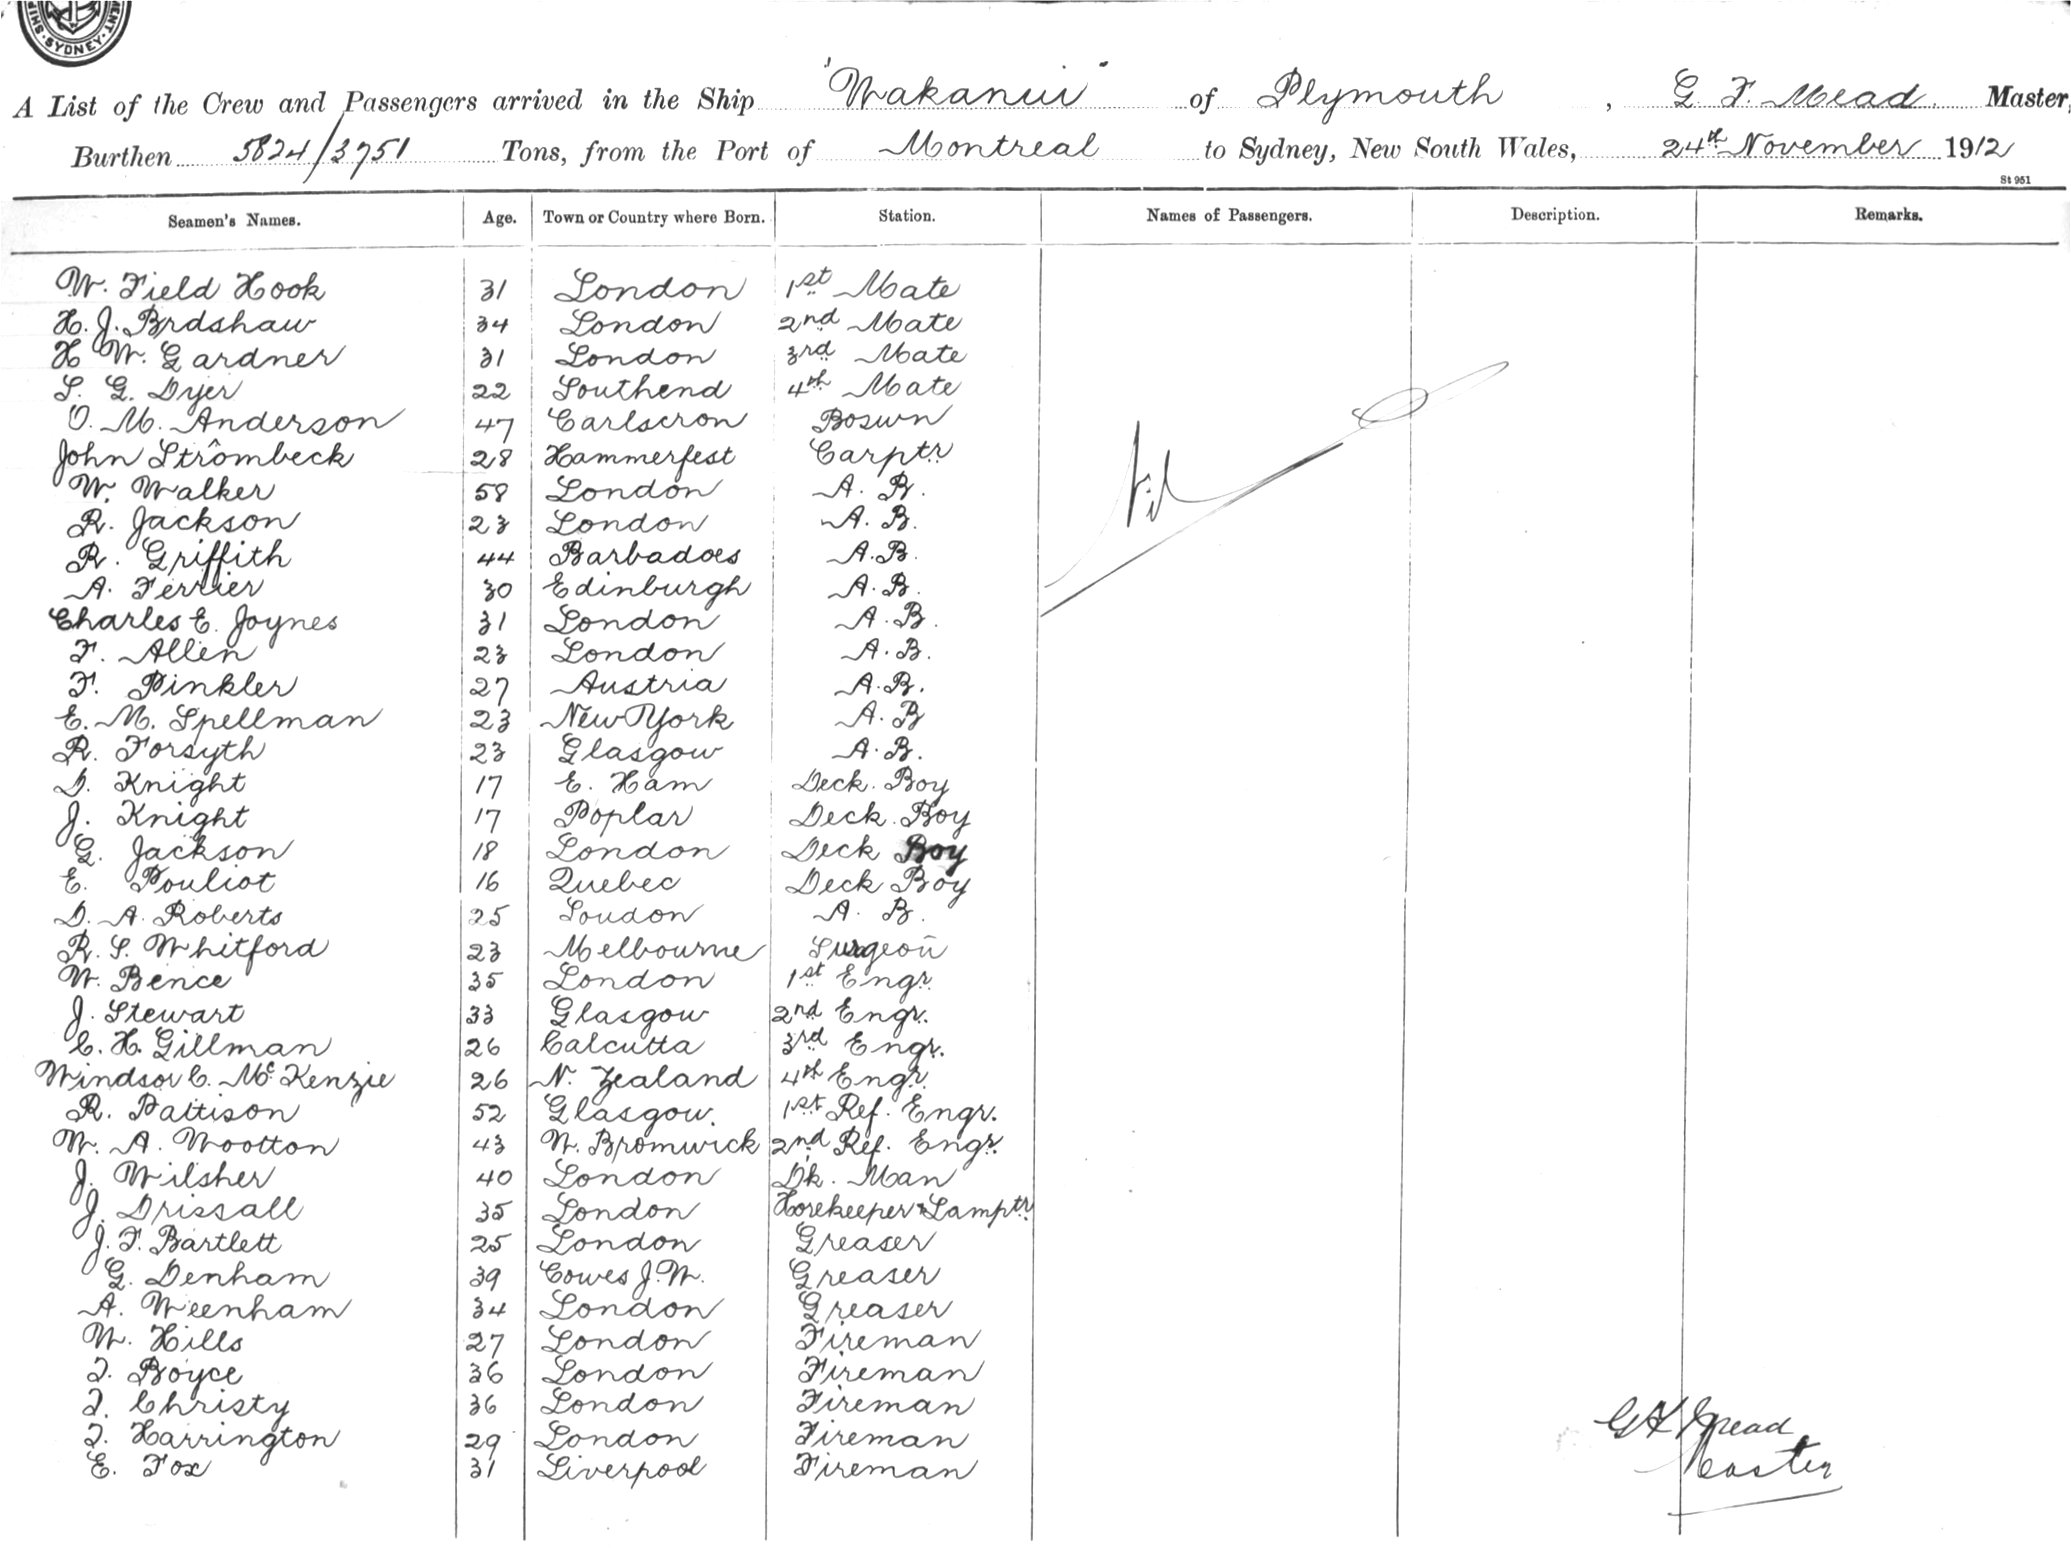 SYDNEY
A List of the Crew and Passengers arrived in the Ship "Wakanui" of Plymouth, G. F. Mead. Master,
Burthen 5824/3751 Tons, from the Port of Montreal to Sydney, New South Wales, 24th November 1912
St 951
Seamen's Names. Age. Town or Country where Born. Station. Names of Passengers. Description. Remarks.
W. Field Hook 31 London 1st Mate
H. J. Brdshaw 34 London 2nd Mate
H W. Gardner 31 London 3rd Mate
S. G. Dyer 22 Southend 4th Mate
O. M. Anderson 47 Carlscron Boswn
John Strômbeck 28 Hammerfest Carptr
W. Walker 58 London A. B.
Nil
R. Jackson 23 London A. B.
R. Griffith 44 Barbadoes A. B.
A. Ferrier 30 Edinburgh A. B.
Charles E. Joynes 31 London A. B.
F. Allen 23 London A. B.
F. Pinkler 27 Austria A. B.
E. M. Spellman 23 New York A. B
R. Forsyth 23 Glasgow A. B.
D. Knight 17 E. Ham Deck. Boy
J. Knight 17 Poplar Deck. Boy
G. Jackson 18 London Deck Boy
E. Pouliot 16 Quebec Deck Boy
D. A. Roberts 25 London A. B.
R. S. Whitford 23 Melbourne Surgeon
W. Bence 35 London 1st Engr.
J. Stewart 33 Glasgow 2nd Engr.
C. H. Gillman 26 Calcutta 3rd Engr.
Windsor C. McKenzie 26 N. Zealand 4th Engr.
R. Pattison 52 Glasgow. 1st Ref. Engr.
W. A. Wootton 43 W. Bromwick 2nd Ref. Engr.
J. Wilsher 40 London Dk. Man
J. Drissall 35 London Lamptr
J. F. Bartlett 25 London Greaser
G. Denham 39 Cowes J. W. Greaser
A. Weenham 34 London Greaser
W. Hills 27 London Fireman
T. Boyce 36 London Fireman
T. Christy 36 London Fireman
T. Harrington 29 London Fireman
G F Mead
E. Fox 31 Liverpool Fireman
Master